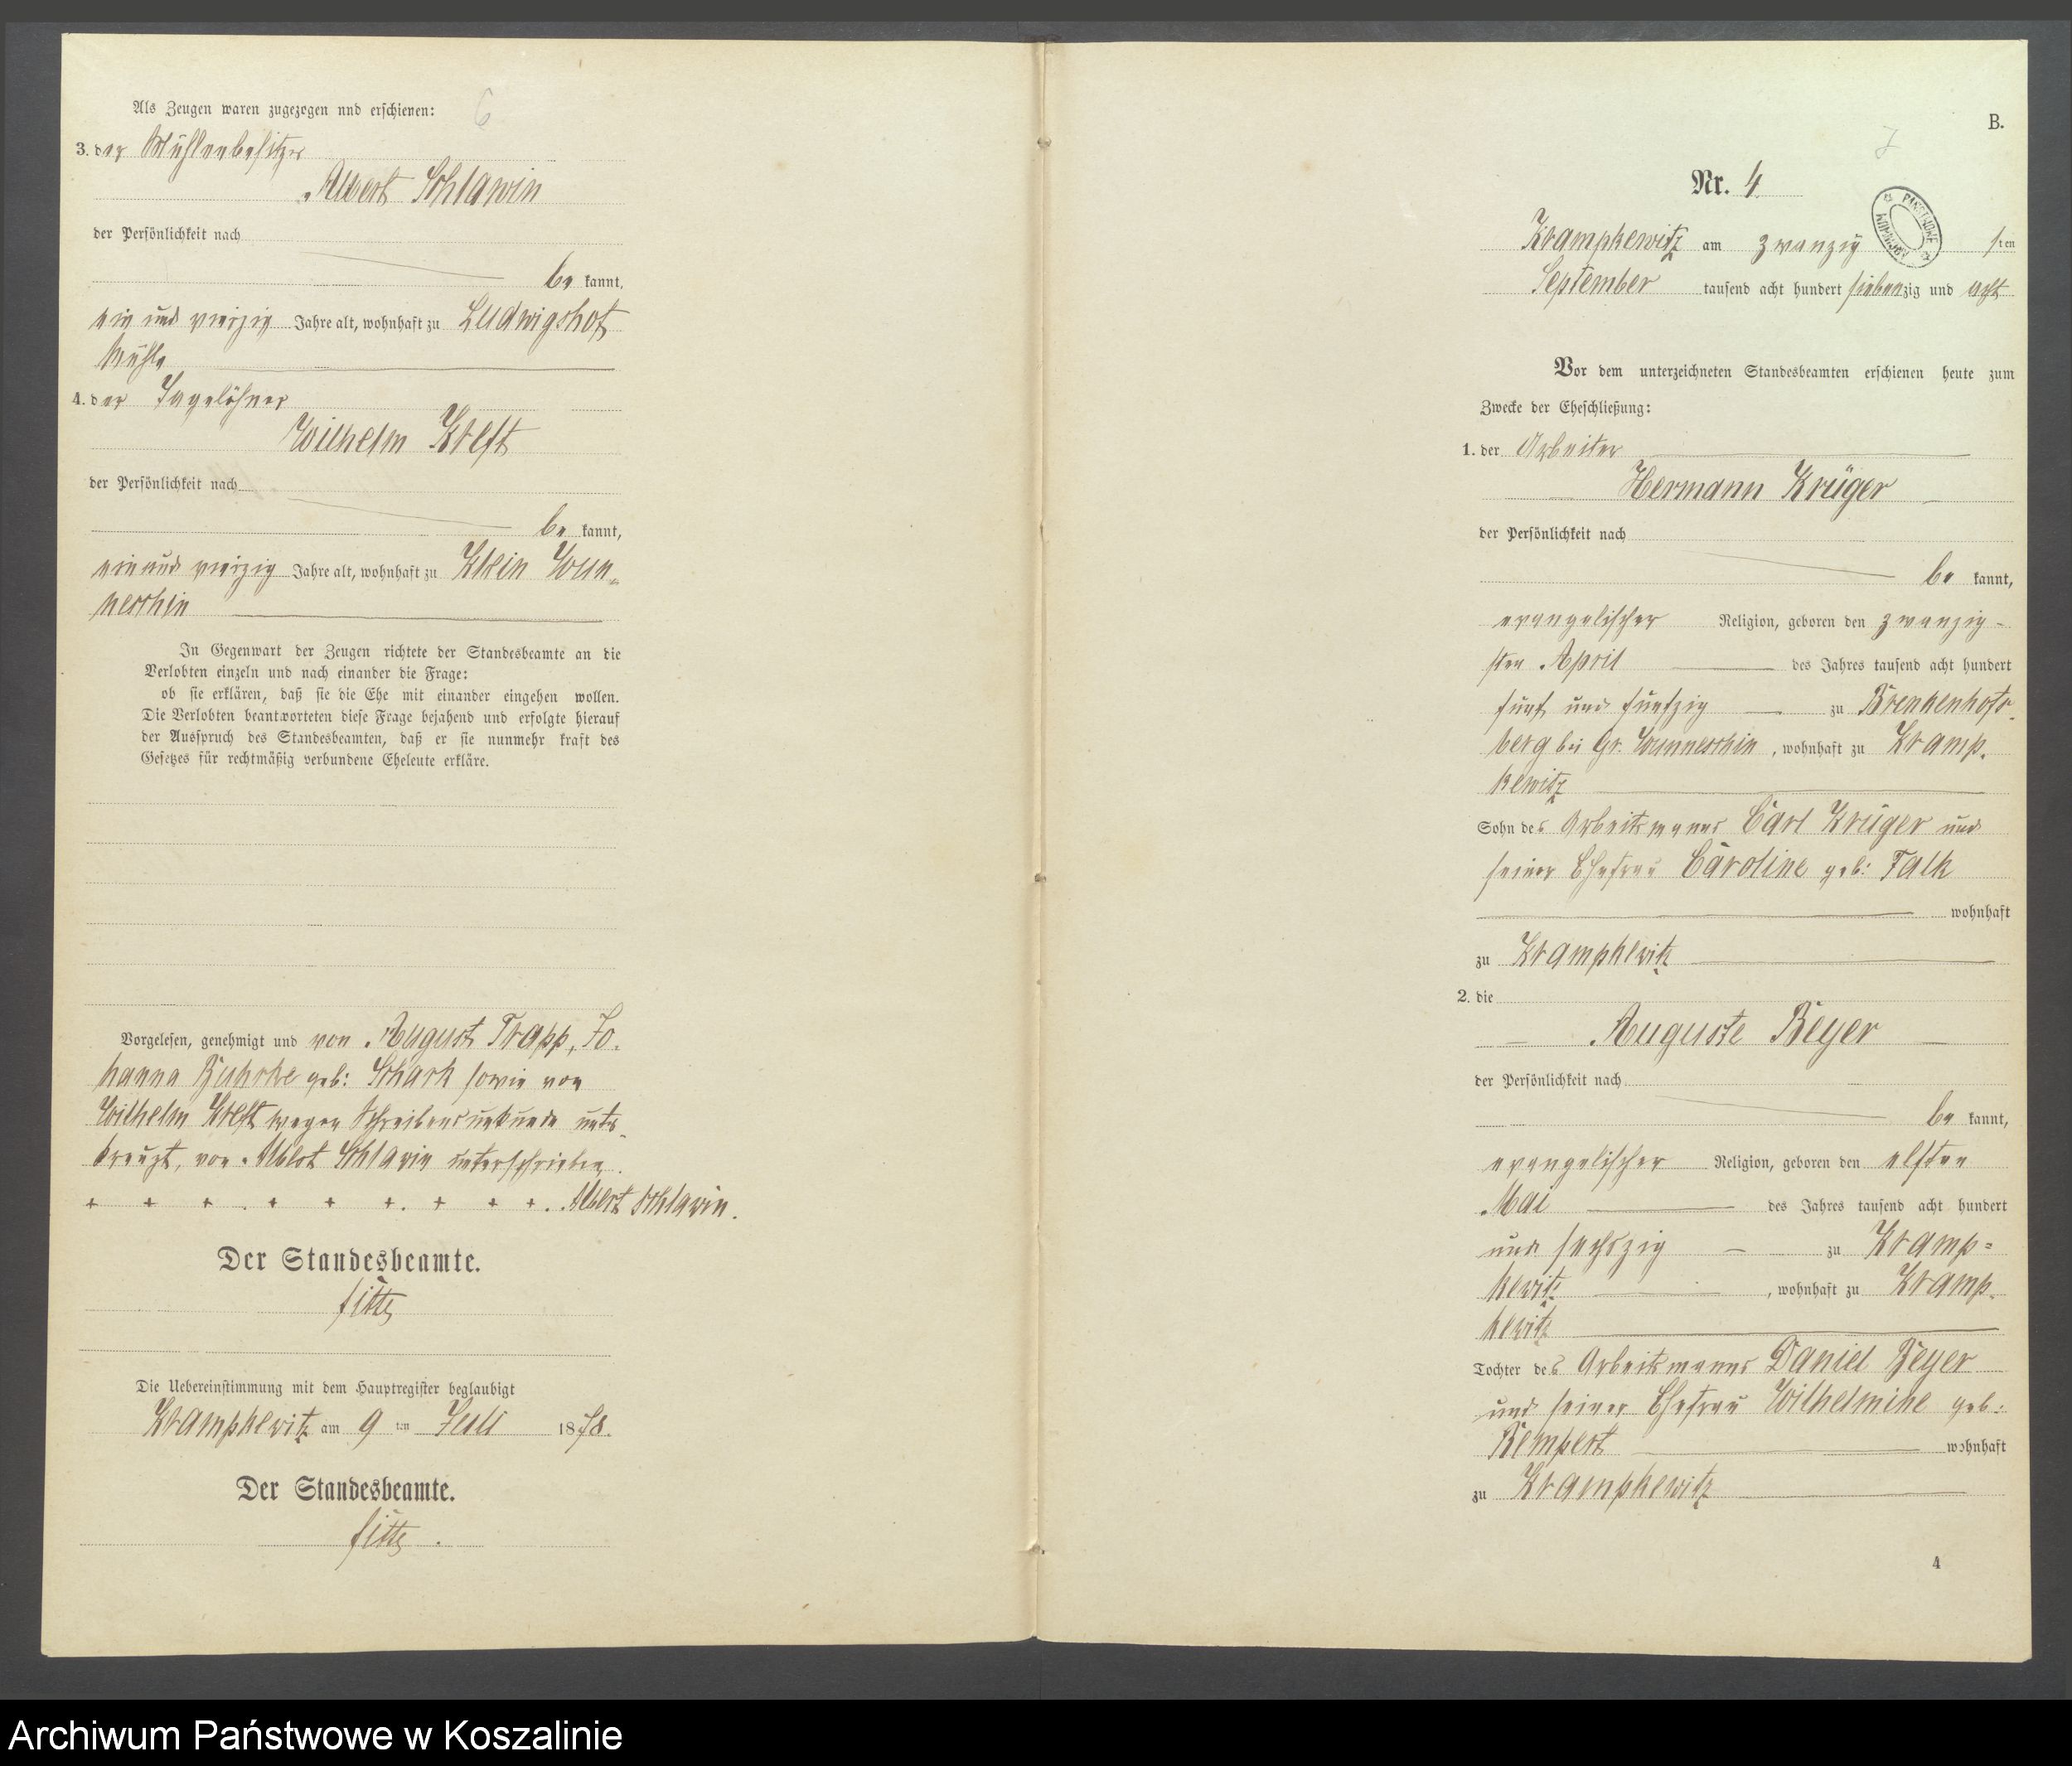 Als Zeugen waren zugezogen und erschienen: 6
3. der Mühlenbesitzer
Albert Schlawin
der Persönlichkeit nach
be kannt,
ein und vierzig Jahre alt, wohnhaft zu Ludwigshof
Mühle
4. der Tagelöhner
Wilhelm Kreft
der Persönlichkeit nach
be kannt,
ein und vierzig Jahre alt, wohnhaft zu Klein Wun-
neschin
In Gegenwart der Zeugen richtete der Standesbeamte an die
Verlobten einzeln und nach einander die Frage:
ob sie erklären, daß sie die Ehe mit einander eingehen wollen.
Die Verlobten beantworteten diese Frage bejahend und erfolgte hierauf
der Ausspruch des Standesbeamten, daß er sie nunmehr kraft des
Gesetzes für rechtmäßig verbundene Eheleute erkläre.
Vorgelesen, genehmigt und von August Trapp, Jo-
hanna geb: Schark sowie von
Wilhelm Kreft wegen Schreibensunkunde unter-
kreuzt, von Albert Schlawin unterschrieben.
+ + + . + + +. + + +. . Albert Schlawin.
Der Standesbeamte.
Die Uebereinstimmung mit dem Hauptregister beglaubigt
Krampkewitz am 9 ten Juli 1878.
Der Standesbeamte.
B.
7
Nr. 4
Krampkewitz am zwanzig sten
September tausend acht hundert siebenzig und acht
Vor dem unterzeichneten Standesbeamten erschienen heute zum
Zwecke der Eheschließung:
1. der Arbeiter
Hermann Krüger
der Persönlichkeit nach
be kannt,
evangelischer Religion, geboren den zwanzig-
sten April des Jahres tausend acht hundert
fünf und funfzig zu Brenkenhofs-
berg bei Gr. Wunneschin, wohnhaft zu Kramp-
kewitz
Sohn des Arbeitsmanns Carl Krüger und
seiner Ehefrau Caroline geb: Falk
wohnhaft
zu Krampkewitz
2. die
Auguste Beyer
der Persönlichkeit nach
be kannt,
evangelischer Religion, geboren den elften
Mai des Jahres tausend acht hundert
und sechszig zu Kramp=
kewitz, wohnhaft zu Kramp-
kewitz
Tochter des Arbeitsmanns Daniel Beyer
und seiner Ehefrau Wilhelmine geb:
Rempert wohnhaft
zu Krampkewitz
4
Archiwum Państwowe w Koszalinie